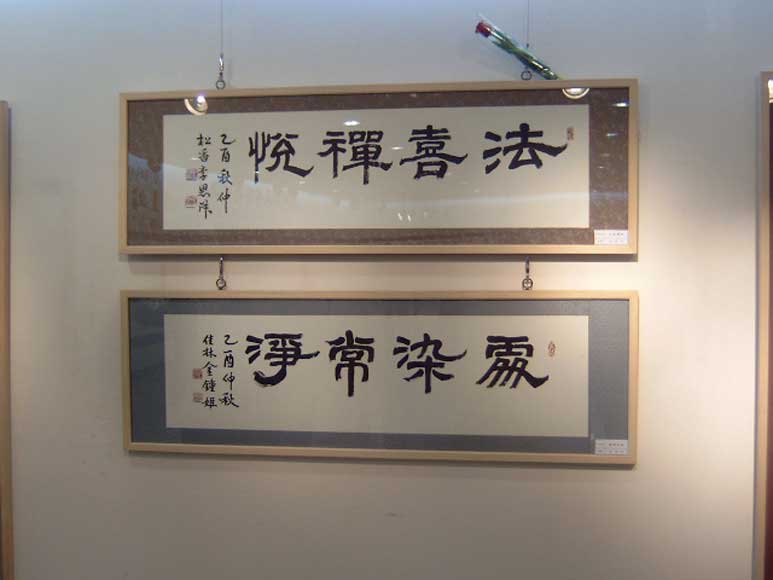 法喜禪悅
乙酉秋仲
松香李恩
處染常淨
乙酉仲秋
佳林金鍾姬